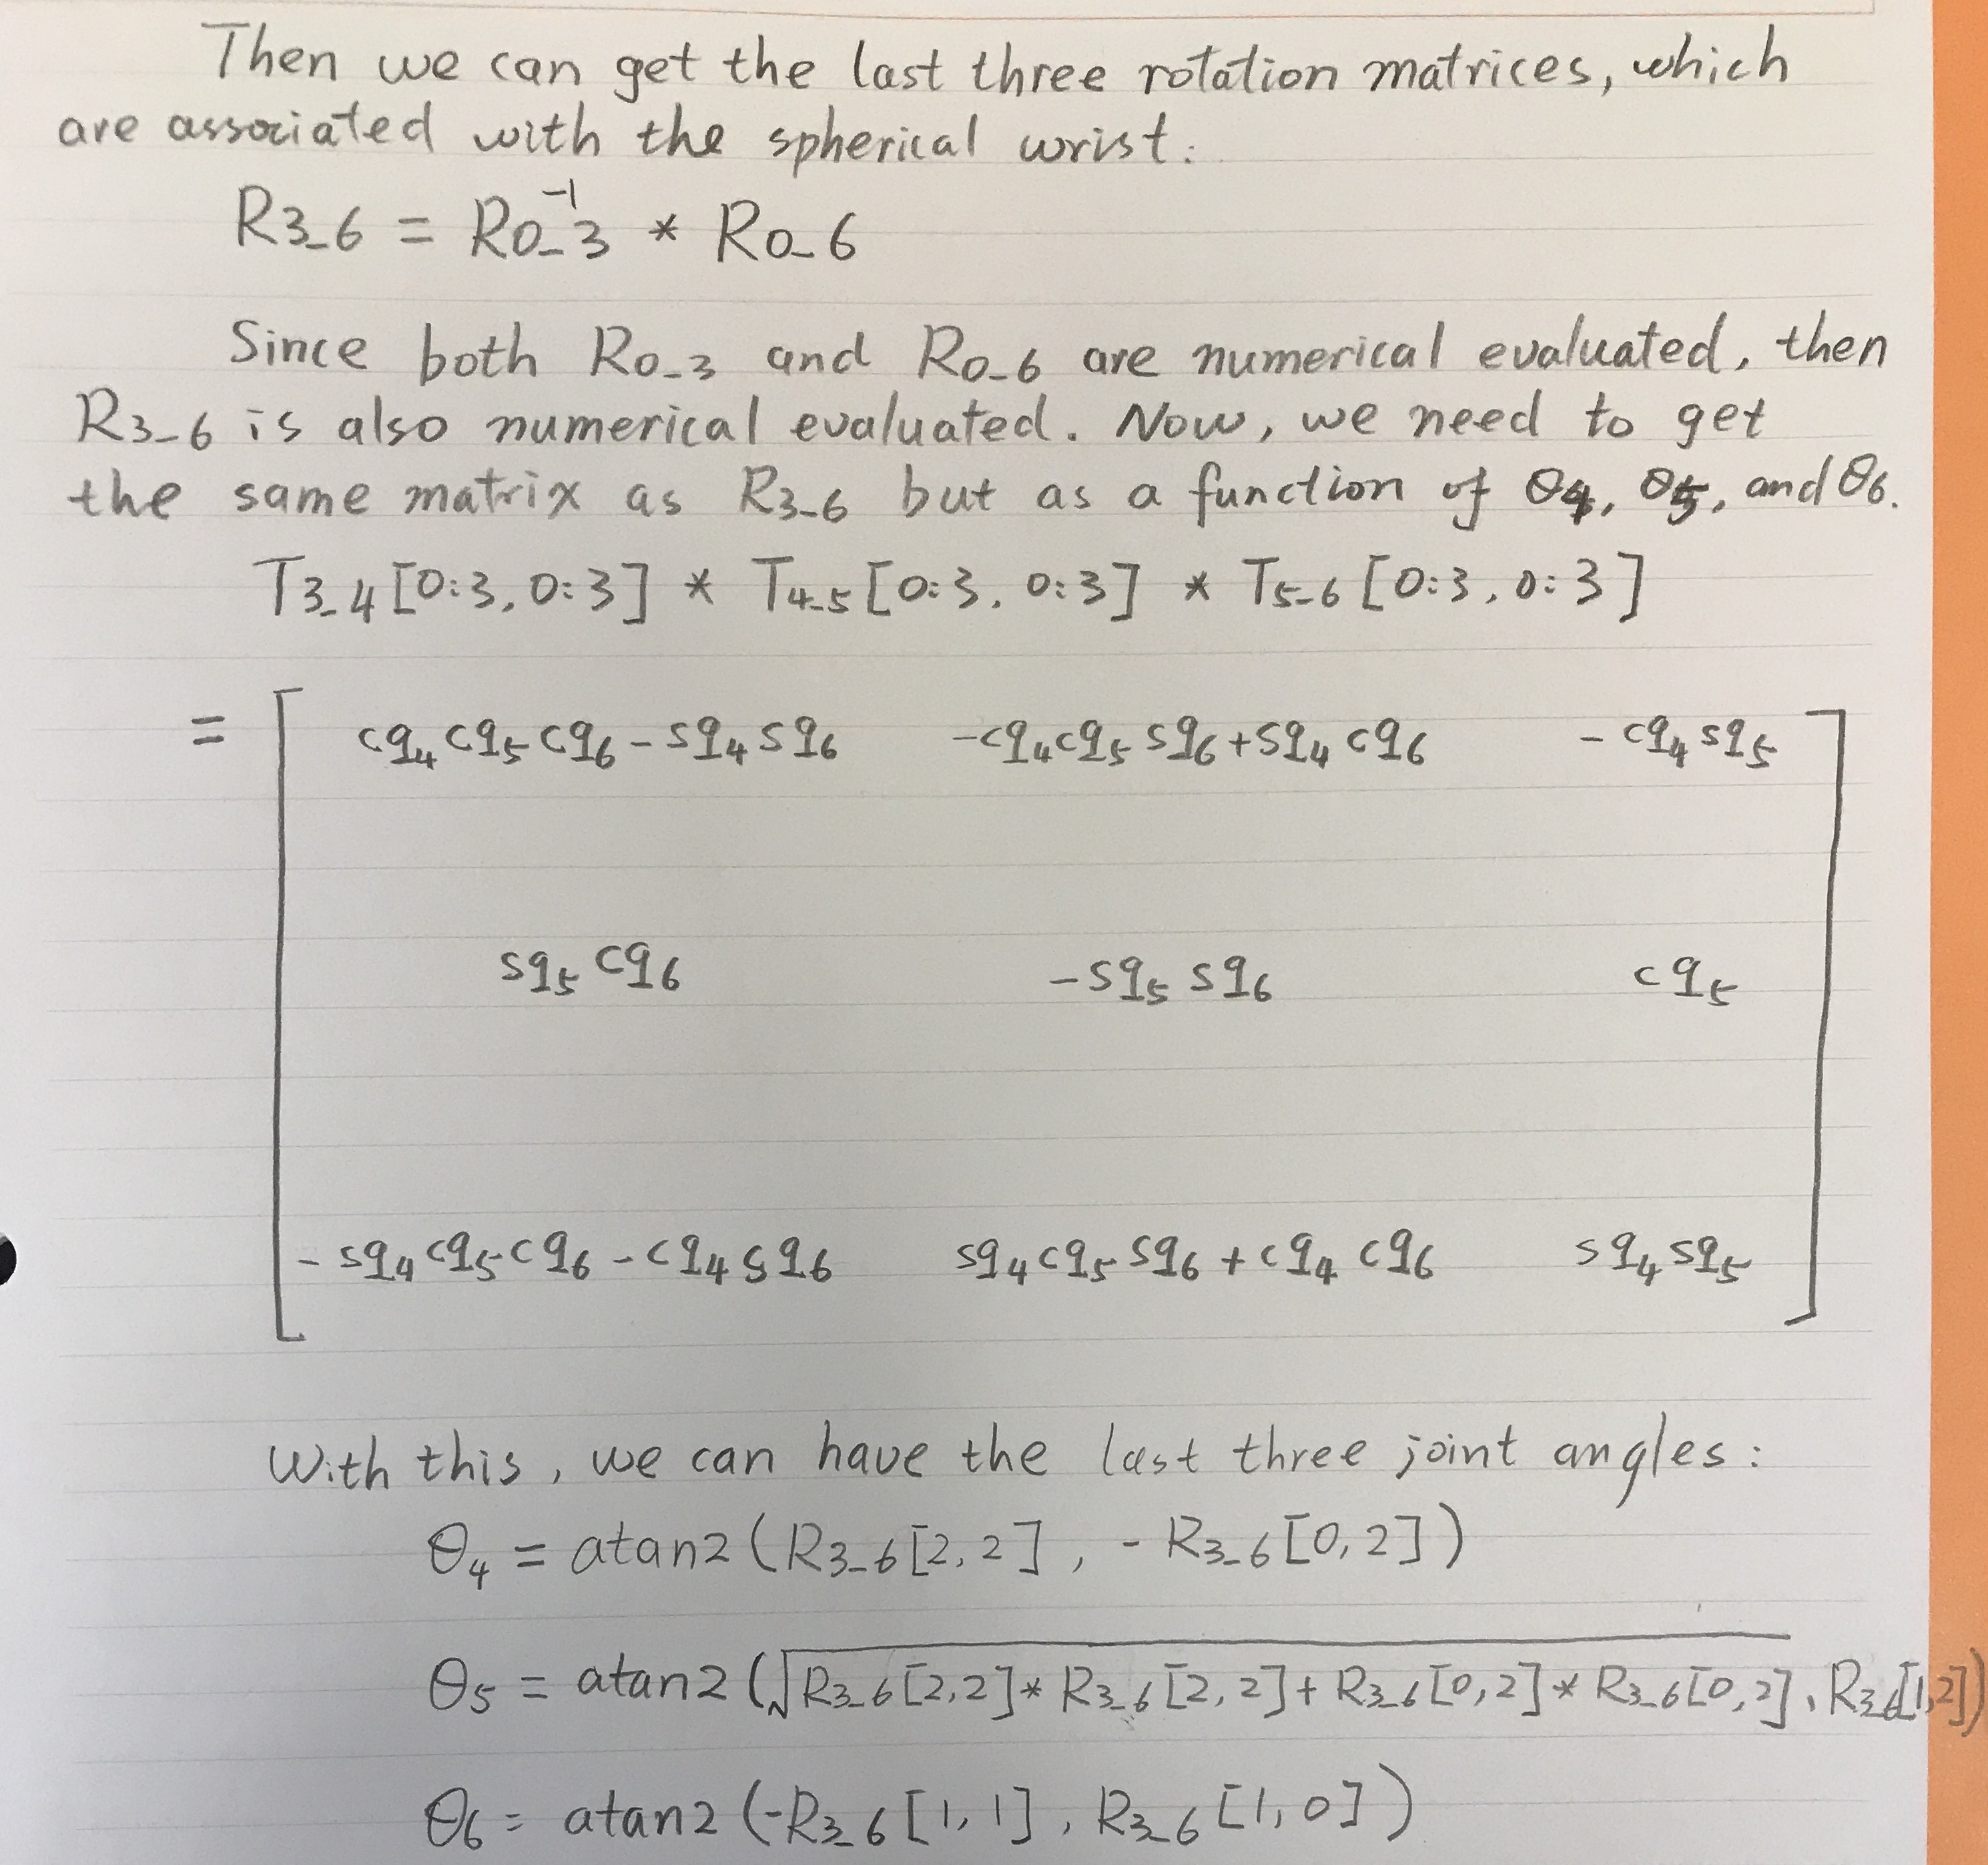 Then we can get the last three rotation matrices, which
are associated with the spherical wrist:
R3_6 = R0_3⁻¹ * R0_6
Since both R0_3 and R0_6 are numerical evaluated, then
R3_6 is also numerical evaluated. Now, we need to get
the same matrix as R3_6 but as a function of θ4, θ5, and θ6.
T3_4[0:3, 0:3] * T4_5[0:3, 0:3] * T5_6[0:3, 0:3]
= [ cq4 cq5 cq6 - sq4 sq6   -cq4 cq5 sq6 + sq4 cq6   - cq4 sq5
sq5 cq6   - sq5 sq6   cq5
- sq4 cq5 cq6 - cq4 sq6   sq4 cq5 sq6 + cq4 cq6   sq4 sq5 ]
With this, we can have the last three joint angles:
θ4 = atan2(R3_6[2,2], - R3_6[0,2])
θ5 = atan2(√R3_6[2,2]* R3_6[2,2] + R3_6[0,2] * R3_6[0,2], R3_6[1,2])
θ6 = atan2(-R3_6[1,1], R3_6[1,0])